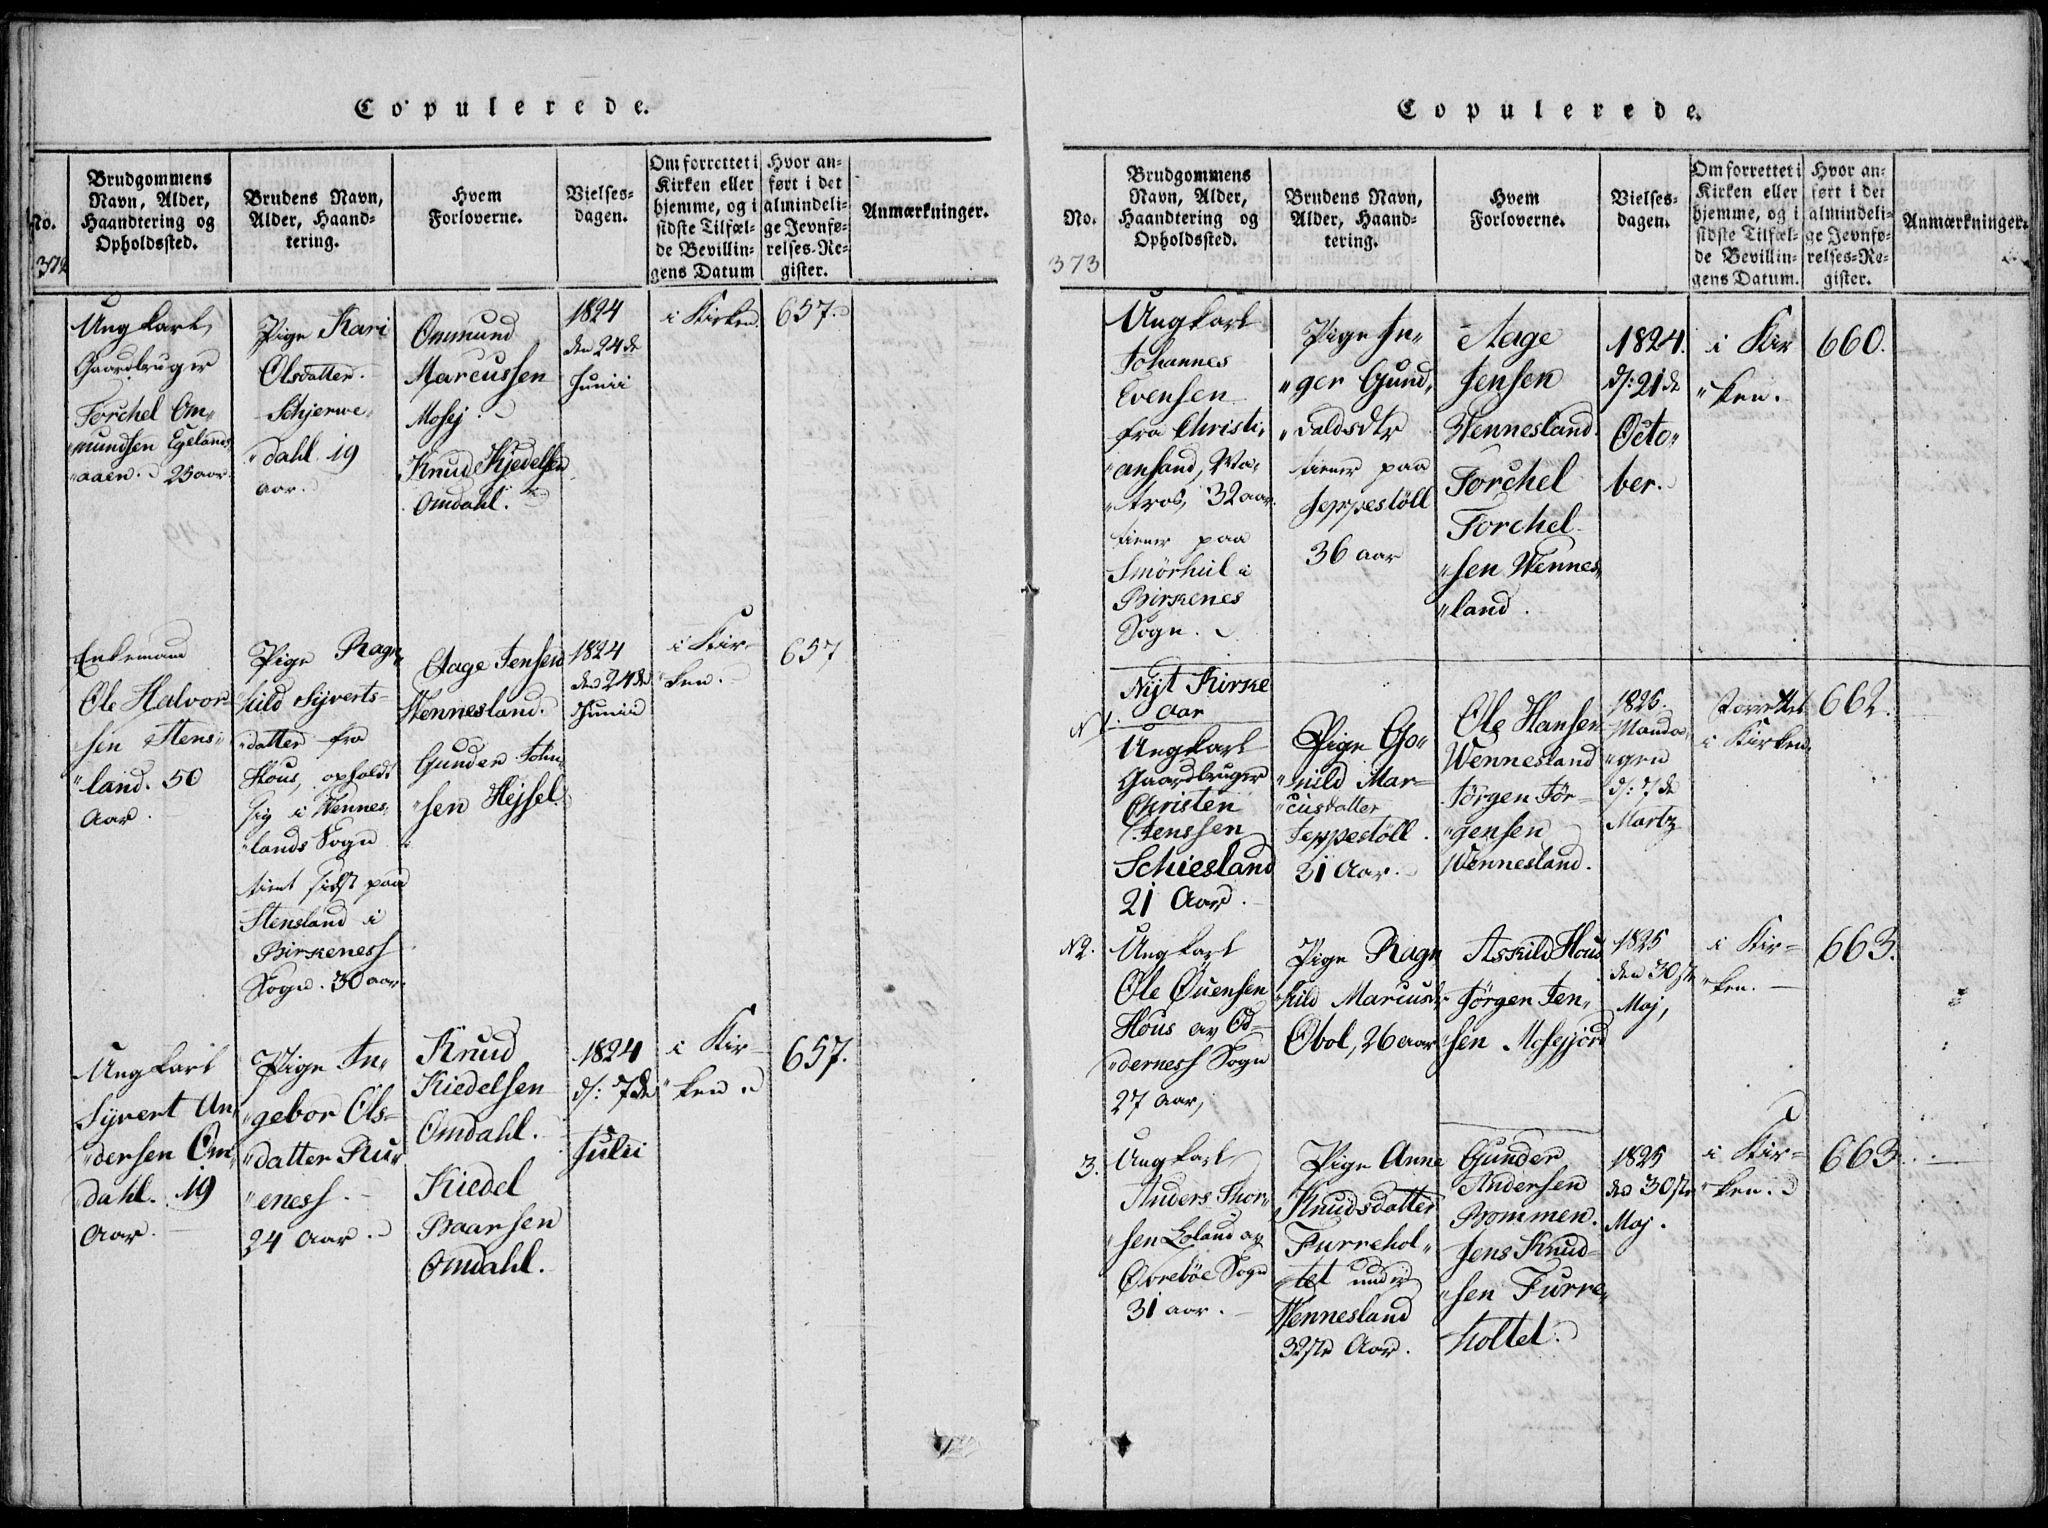 Copulerede.
No.
372
Brudgommens
Navn, Alder,
Haandtering og
Opholdssted.
Brudens Navn,
Alder, Haand=
tering.
Hvem
Forloverne.
Vielses=
dagen.
Om forrettet i
Kirken eller
hjemme, og i
sidste Tilfæl=
de Bevillin=
gens Datum
Hvor an=
ført i det
almindeli=
ge Jevnfø=
relses=Re=
gister.
Anmærkninger.
Ungkarl
Gaardbruger
Torchel Om„
„mundsen Egelands
„aaen. 23 aar.
Pige Kari
Olsdatter
Schjerve„
„dahl 19
aar.
Ommund
Marcussen
Mosej
Knud Kjedelsen
Omdahl.
1824
den 24de
Junii
i Kirken.
657.
Enkemand
Ole Halvor
sen Stens„
„land. 50
Aar.
Pige Ragn„
hild Sijverts„
„datter fra
Hous, opholdt
sig i Wennes„
„lands Sogn
tient sidst paa
Stensland i
Birkeness
Sogn. 30 aar.
Aage Jensen
Wennesland.
Gunder John„
„sen Hejsel.
1824
den 24de
Junii
i Kir„
„ken.
657
Ungkarl
Sijvert An„
„dersen Om„
dahl. 19
Aar.
Pige In„
„gebor Ols„
„datter Ru„
„eness.
24 Aar.
Knud
Kiedelsen
Omdahl.
Kiedel
Baarsen
Omdahl.
1824
d: 7de
Julii
i Kir„
„ken.
657.
Copulerede.
No.
373
Brudgommens
Navn, Alder,
Haandtering og
Opholdssted.
Brudens Navn,
Alder, Haand=
tering.
Hvem
Forloverne.
Vielses=
dagen.
Om forrettet i
Kirken eller
hjemme, og i
sidste Tilfæl=
de Bevillin=
gens Datum.
Hvor an=
ført i det
almindeli=
ge Jevnfø=
relses=Re=
gister.
Anmærkninger.
Ungkarl
Johannes
Evensen
fra Christi„
„ansand, Ma„
„tros, 32 aar.
tiener paa
Smörhül i
Birkenes
Sogn.
Pige In„
„ger Gund„
„valdsdtr
tiener paa
Jeppestöll
36 aar
Aage
Jensen
Wennesland
Torchel
Torchel
„sen Wennes„
„land.
1824.
d: 21de
Octo„
ber.
i Kir
„ken.
660.
Nijt Kirke
Aar
N 1.
Ungkarl
Gaardbruger
Christen
Jenssen
Schiesland
21 Aar.
Pige Go„
„nild Mar„
„cusdatter
Jeppestöll.
31 Aar.
Ole Hansen
Wennesland
Jörgen Jör„
„gensen
Wennesland.
1825.
Manda„
„gen
d: 7de
Martz
Forrettet
i Kirken.
662.
N2.
Ungkarl
Ole Ouensen
Hous av Od„
„derness Sogn
27 Aar,
Pige Ragn
„hild Marcusd.
Obol, 26 aar
Askild Hous
Jörgen Jen„
sen Mosejord
1825
den 30ste
Maj,
i Kir„
„ken.
663.
3.
Ungkarl
Anders Thor„
„sen Loland av
Övreböe Sogn
31 aar.
Pige Anne
Knudsdatter
Furrehol„
„tet under
Wennesland
32ste Aar.
Gunder
Andersen
Bommen.
Jens Knud„
„sen Furre„
holtet.
1825
den 30ste
Maj.
i Kir„
„ken.
663.